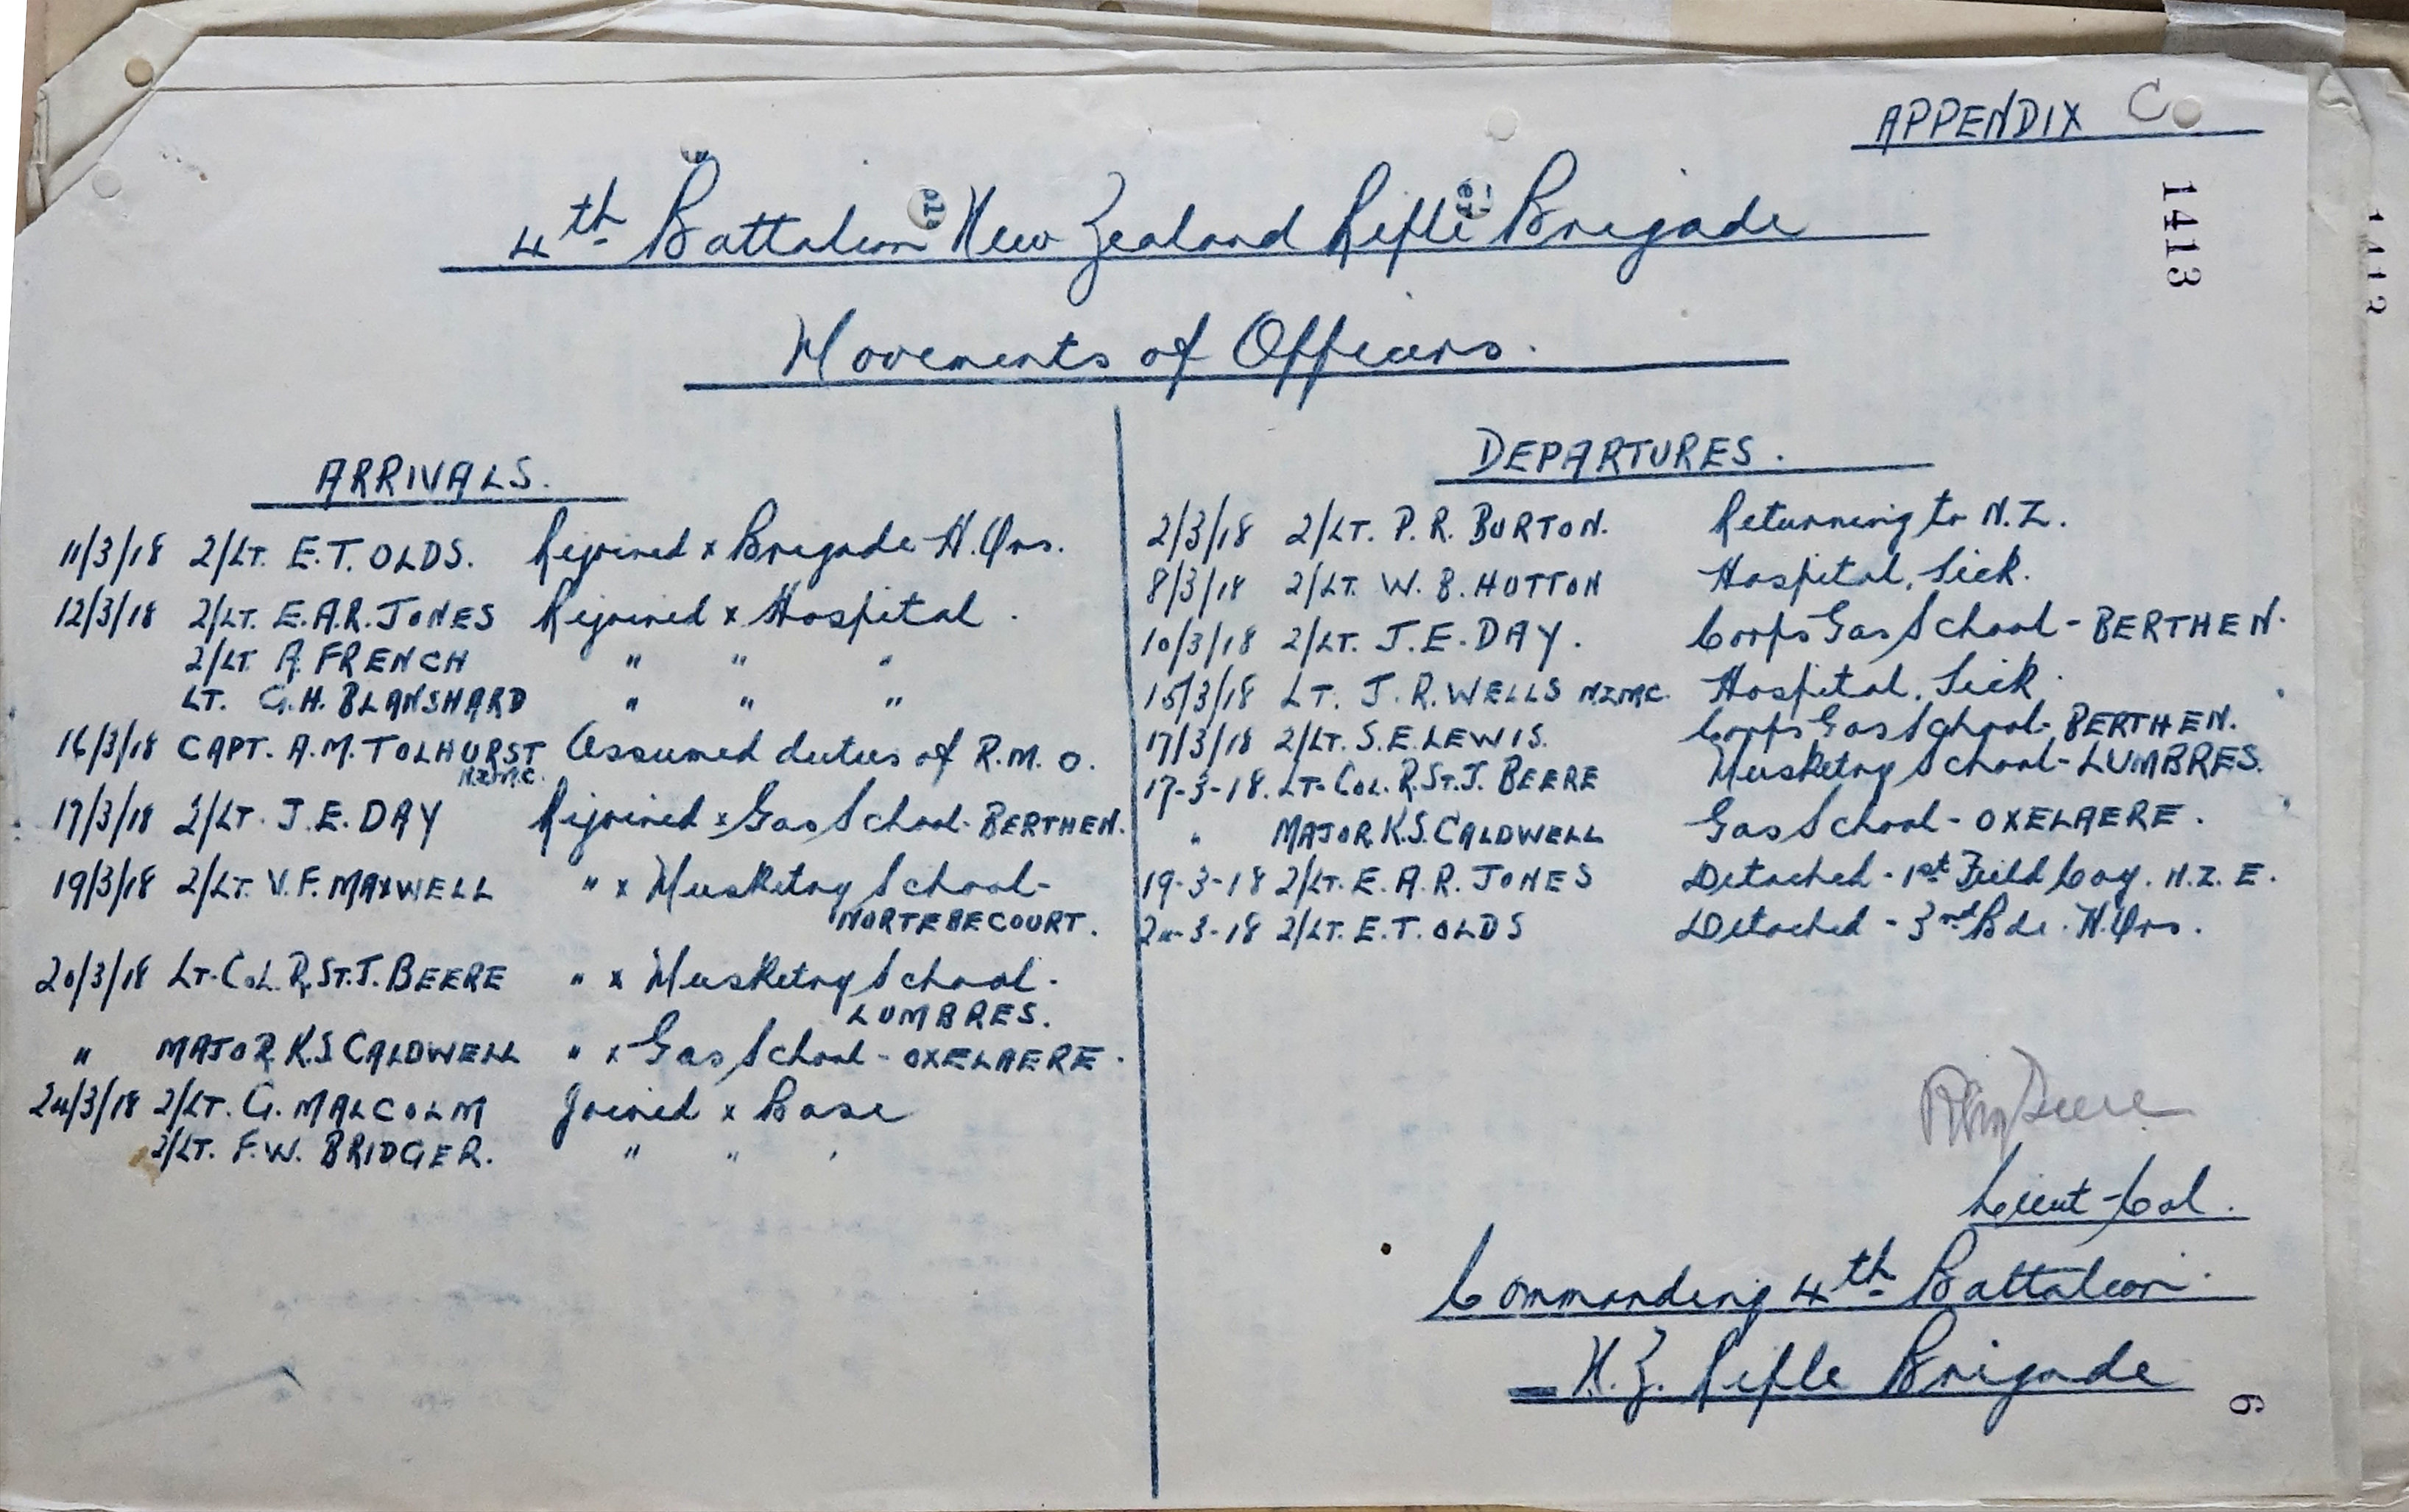 APPENDIX C
1413
4th Battalion New Zealand Rifle Brigade
Movements of Officers.
ARRIVALS.
11/3/18 2/LT. E.T. OLDS. Rejoined x Brigade H.Qrs.
12/3/18 2/LT. E.A.R. JONES Rejoined x Hospital.
2/LT A. FRENCH " " "
LT. G.H. BLANSHARD " " "
16/3/18 CAPT. A.M. TOLHURST Assumed duties of R.M.O.
N.Z.M.C.
17/3/18 2/LT. J.E. DAY Rejoined x Gas School - BERTHEN.
19/3/18 2/LT. V.F. MAXWELL " x Musketry School -
NORTEBECOURT.
20/3/18 LT-COL. R. ST. J. BEERE " x Musketry School -
LUMBRES.
" MAJOR K.S. CALDWELL " x Gas School - OXELAERE.
24/3/18 2/LT. G. MALCOLM Joined x Base
2/LT. F.W. BRIDGER. " " "
DEPARTURES.
2/3/18 2/LT. P.R. BURTON. Returning to N.Z.
8/3/18 2/LT. W.B. HUTTON Hospital, Sick.
10/3/18 2/LT. J.E. DAY. Corps Gas School - BERTHEN.
15/3/18 LT. J.R. WELLS NZMC. Hospital, Sick.
17/3/18 2/LT. S.E. LEWIS. Corps Gas School - BERTHEN.
17-3-18. LT-COL. R. ST. J. BEERE Musketry School - LUMBRES.
" MAJOR K.S. CALDWELL Gas School - OXELAERE.
19-3-18 2/LT. E.A.R. JONES Detached - 1st Field Coy. N.Z.E.
24-3-18 2/LT. E.T. OLDS Detached - 3rd Bde. H.Qrs.
Beere
Lieut-Col.
Commanding 4th Battalion
N.Z. Rifle Brigade
6